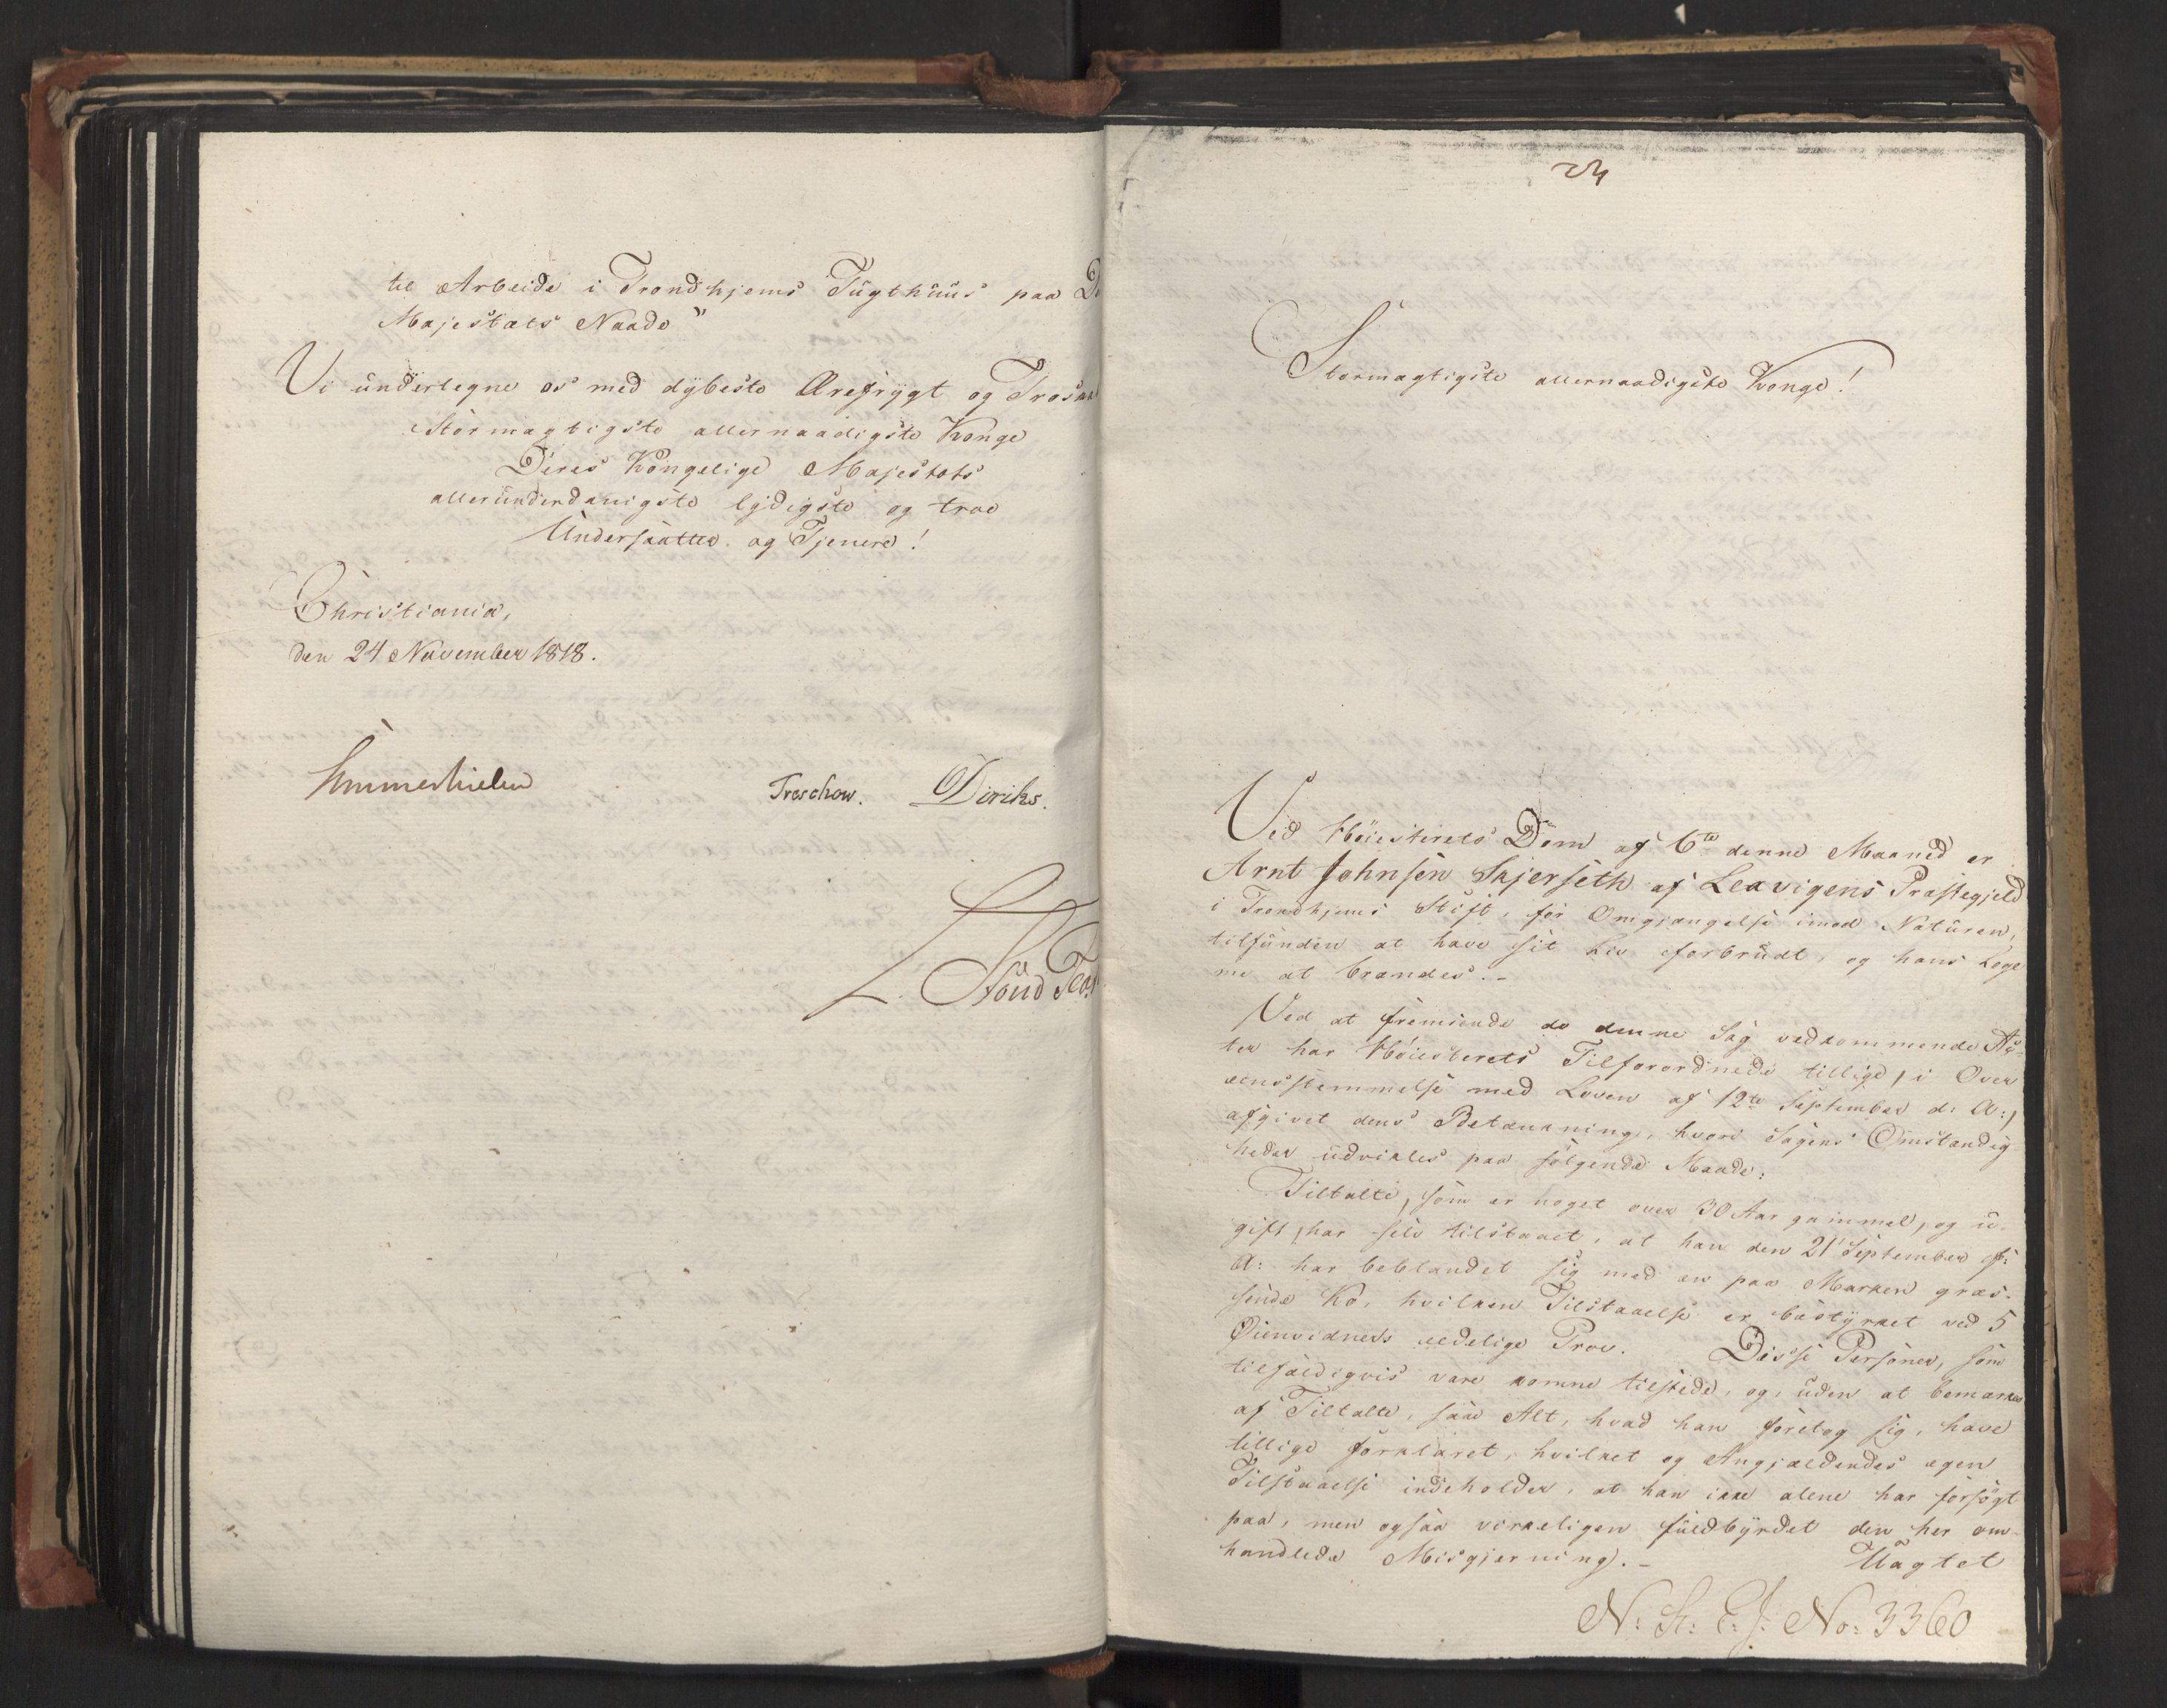 til Arbeide i Trondhjems Tugthuus paa
Majestæts Naade"
Vi underlegne os med dybeste Ærefrygt og
Stormægtigste allernaadigste Konge
Deres Kongelige Majestæts
allerunderdanigste lydigste og troe
Undersaatter og Tjenere!
Christiania,
den 24 November 1818.
Sommerhielm
Treschow. Diriks.
24
Stormægtigste allernaadigste Konge!
Ved Høiesterets Dom af 6te denne Maaned er
Arnt Johnsen Skjerseth af Lexvigens Præstegjeld
i Trondhjems Stift, for Omgjængelse imod Naturen,
tilfunden at have sit Liv forbrudt, og hans Lege
me at brændes.-
Ved at fremsende de denne Sag vedkommende Ac-
ter har Høiesterets Tilforordnede tillige, i Over
eensstemmelse med Loven af 12te September d: A:,
afgivet dens Betænkning, hvori Sagens Omstændig
heder udvikles paa følgende Maade:
Tiltalte, som er noget over 30 Aar gammel, og u-
gift, har selv tilstaaet, at han den 21 September f:
A: har beblandet sig med en paa Marken græs-
sende Ko, hvilken Tilstaaelse er bestyrket ved 5
Øienvidners eedelige Prov. Disse Personer, som
tilfældigvis vare komne tilstede, og, uden at bemærkes
af Tiltalte, saae Alt, hvad han foretog sig, have
tillige forklaret, hvilket og Angjældendes egen
Tilstaaelse indeholder, at han ikke alene har forsøgt
paa, men ogsaa virkeligen fuldbyrdet den her om-
handlede Misgjerning.- Uagtet
N: S: E: J: No: 3360